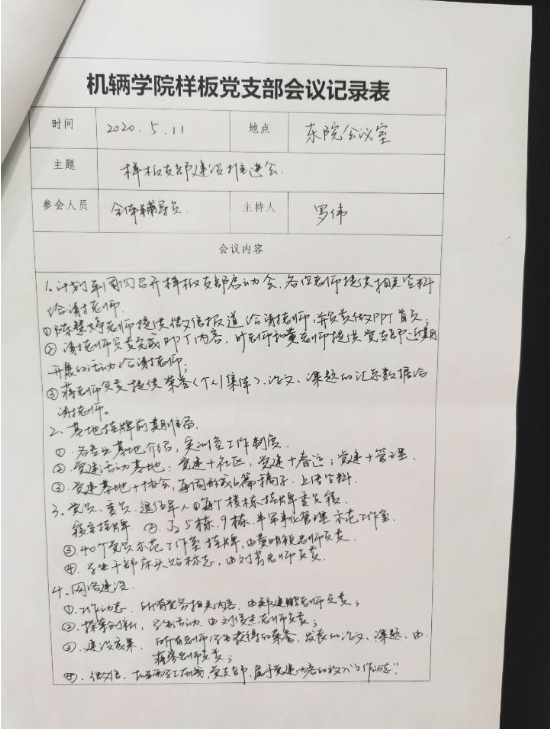 机辆学院样板党支部会议记录表
时间 2020.5.11 地点 东院会议室
主题 样板支部建设推进会
参会人员 全体辅导员 主持人 罗伟
会议内容
1.计划本周四召开样板支部启动会,各位老师提供相关资料
给谢老师.
①陈慧婷老师提供微信报道给谢老师,并负责做PPT首页;
②谢老师负责完成PPT内容,
开展的活动给谢老师;
③蒋老师负责提供荣誉(个人集体)、论文、课题的汇总数据给
谢老师。
2.基地挂牌
①.各专业基地介绍,实训室工作制度
②.党建活动基地:党建+社区,党建+春运;党建+管理
③.党建基地+协会,每周形成1篇稿子,上传资料.
3.党员、
挂牌 ②.5栋、9栋 半军事化管理示范工作室
③40个党员示范工作室挂牌,由黄明锐老师负责.
④.学生干部床头贴标志,由刘芳老师负责
4.网络建设
①.工作动态,所有党务相关内容,由老师负责;
②.探索创新,活动,由老师负责;
③.建设成果,所有老师学生获得的荣誉,发表的论文、课题,由
老师负责;
④.微信、党支部,属于党建内容的放入"工作动态"